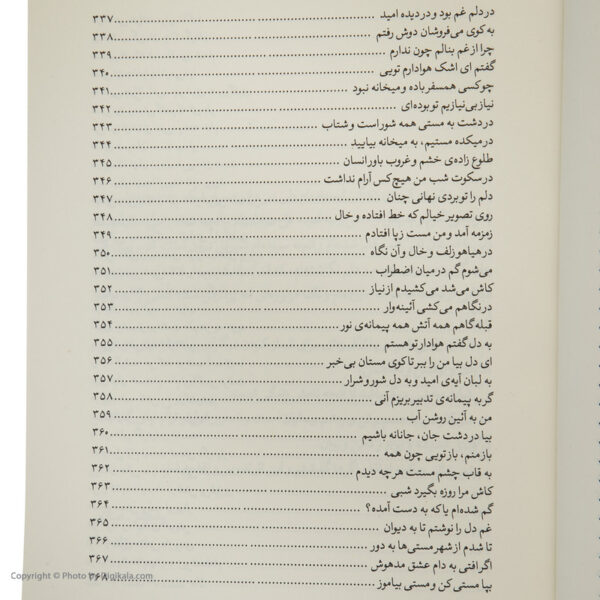 در دلم غم بود و در دیده امید ........ ۳۳۷
به کوی می‌فروشان دوش رفتم ........ ۳۳۸
چرا از غم بنالم چون ندارم ........ ۳۳۹
گفتم ای اشک هوادارم تویی ........ ۳۴۰
چو کسی همسفر باده و میخانه نبود ........ ۳۴۱
نیاز بی‌نیازیم تو بوده‌ای ........ ۳۴۲
در دشت به مستی همه شور است و شتاب ........ ۳۴۳
در میکده مستیم، به میخانه بیایید ........ ۳۴۴
طلوع زاده‌ی خشم و غروب باور انسان ........ ۳۴۵
در سکوت شب من هیچ کس آرام نداشت ........ ۳۴۶
دلم را تو بردی نهانی چنان ........ ۳۴۷
روی تصویر خیالم که خط افتاده و خال ........ ۳۴۸
زمزمه آمد و من مست ز پا افتادم ........ ۳۴۹
در هیاهو زلف و خال و آن نگاه ........ ۳۵۰
می‌شوم گم در میان اضطراب ........ ۳۵۱
کاش می‌شد می‌کشیدم از نیاز ........ ۳۵۲
در نگاهم می‌کشی آئینه‌وار ........ ۳۵۳
قبله‌گاهم همه آتش همه پیمانه‌ی نور ........ ۳۵۴
به دل گفتم هوادار تو هستم ........ ۳۵۵
ای دل بیا من را ببر تا کوی مستان بی‌خبر ........ ۳۵۶
به لبان آیه‌ی امید و به دل شور و شرار ........ ۳۵۷
گر به پیمانه‌ی تدبیر بریزم آنی ........ ۳۵۸
من به آئین روشن آب ........ ۳۵۹
بیا در دشت جان، جانانه باشیم ........ ۳۶۰
باز منم، باز تویی چون همه ........ ۳۶۱
به قاب چشم مستت هر چه دیدم ........ ۳۶۲
کاش مرا روزه بگیرد شبی ........ ۳۶۳
گم شده‌ام یا که به دست آمده؟ ........ ۳۶۴
غم دل را نوشتم تا به دیوان ........ ۳۶۵
تا شدم از شهر مستی‌ها به دور ........ ۳۶۶
اگر افتی به دام عشق مدهوش ........ ۳۶۷
بپا مستی کن و مستی بیاموز ........ ۳۶۸
Copyright © Photo by Digikala.com